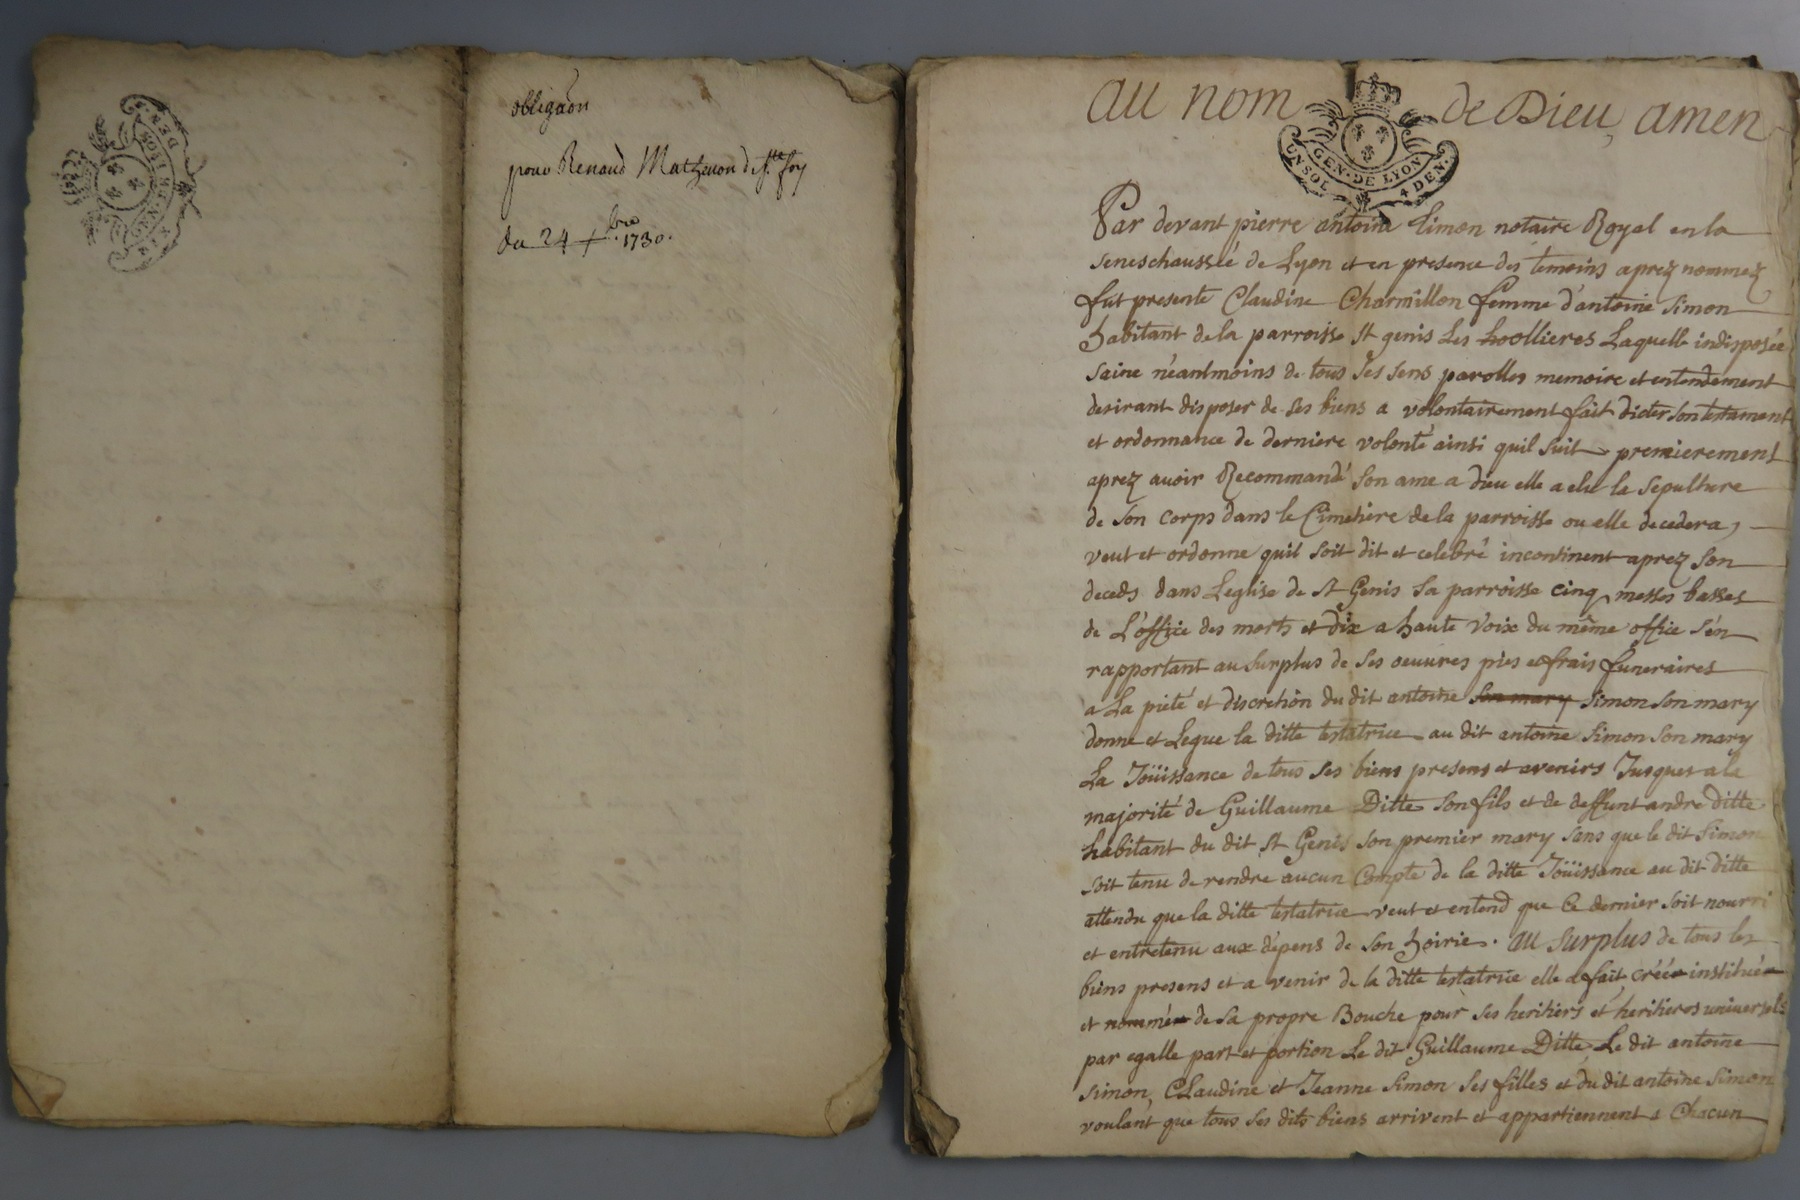 obligaõn
pour Renaud Mathevon de Ste foy
du 24 bre 1730.
au nom de Dieu, amen
GEN. DE LYON
UN SOL 4 DEN.
Par devant pierre antoine Simon notaire Royal en la
seneschaussée de Lyon et en presence des temoins aprez nommez
fut presente Claudine Charmillon femme d'antoine Simon
habitant de la parroisse St genis Les hoollieres Laquelle indisposée
saine néantmoins de tous ses sens parolles memoire et entendement
desirant disposer de ses biens a volontairement fait dicter son testament
et ordonnance de derniere volonté ainsi quil suit premierement
aprez avoir Recommandé son ame a dieu elle a elu la sepulture
de son corps dans le Cimetière de la parroisse ou elle decedera,
veut et ordonne quil soit dit et celebré incontinent aprez son
deceds dans Leglise de St Genis sa parroisse cinq messes basses
de L'office des morts et dix a haute voix du même office s'en
rapportant au surplus de ses oeuvres pies et frais funeraires
a La pieté et discretion du dit antoine son mary simon son mary
donne et Legue la ditte testatrice au dit antoine simon son mary
La Joüissance de tous ses biens presens et avenirs Jusques a la
majorité de Guillaume Ditte son fils et de deffunt andré ditte
habitant du dit St Genis son premier mary sans que le dit Simon
soit tenu de rendre aucun Compte de la ditte Joüissance au dit ditte
attendu que la ditte testatrice veut et entend que Ce dernier soit nourri
et entretenu aux dépens de son hoirie. au surplus de tous les
biens presens et a venir de la ditte testatrice elle a fait, créé institué
et nommé de sa propre Bouche pour ses heritiers et heritieres universels
par egalle part et portion Le dit Guillaume Ditte, Le dit antoine
simon, CLaudine et Jeanne Simon ses filles et du dit antoine Simon
voulant que tous ses dits biens arrivent et appartiennent a Chacun